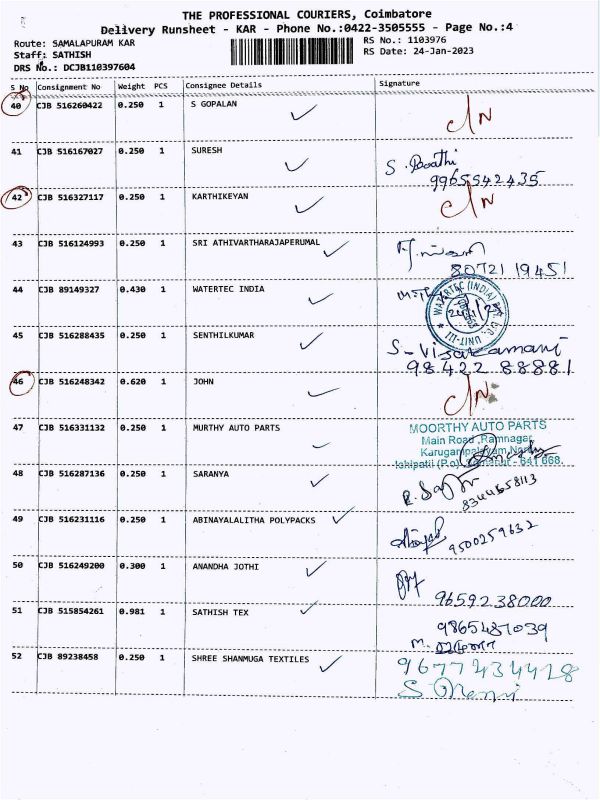 THE PROFESSIONAL COURIERS, Coimbatore
Delivery Runsheet - KAR - Phone No.:0422-3505555 - Page No.:4
Route: SAMALAPURAM KAR RS No.: 1103976
Staff: SATHISH RS Date: 24-Jan-2023
DRS No.: DCJB110397604
S No Consignment No Weight PCS Consignee Details Signature
40 CJB 516260422 0.250 1 S GOPALAN C/N
41 CJB 516167027 0.250 1 SURESH S. Boathi
9965542435
42 CJB 516327117 0.250 1 KARTHIKEYAN C/N
43 CJB 516124993 0.250 1 SRI ATHIVARTHARAJAPERUMAL
80721 19451
44 CJB 89149327 0.430 1 WATERTEC INDIA
WATERTEC (INDIA) PVT. LTD. UNIT-III
45 CJB 516288435 0.250 1 SENTHILKUMAR S-Visakamani
98422 88881
46 CJB 516248342 0.620 1 JOHN C/N
47 CJB 516331132 0.250 1 MURTHY AUTO PARTS MOORTHY AUTO PARTS
Main Road, Ramnagar,
Karugampalayam
(P.o) - 641 668.
48 CJB 516287136 0.250 1 SARANYA
8344658113
49 CJB 516231116 0.250 1 ABINAYALALITHA POLYPACKS
9500259632
50 CJB 516249200 0.300 1 ANANDHA JOTHI
9659238000
51 CJB 515854261 0.981 1 SATHISH TEX 9865487039
M.
52 CJB 89238458 0.250 1 SHREE SHANMUGA TEXTILES 9677434428